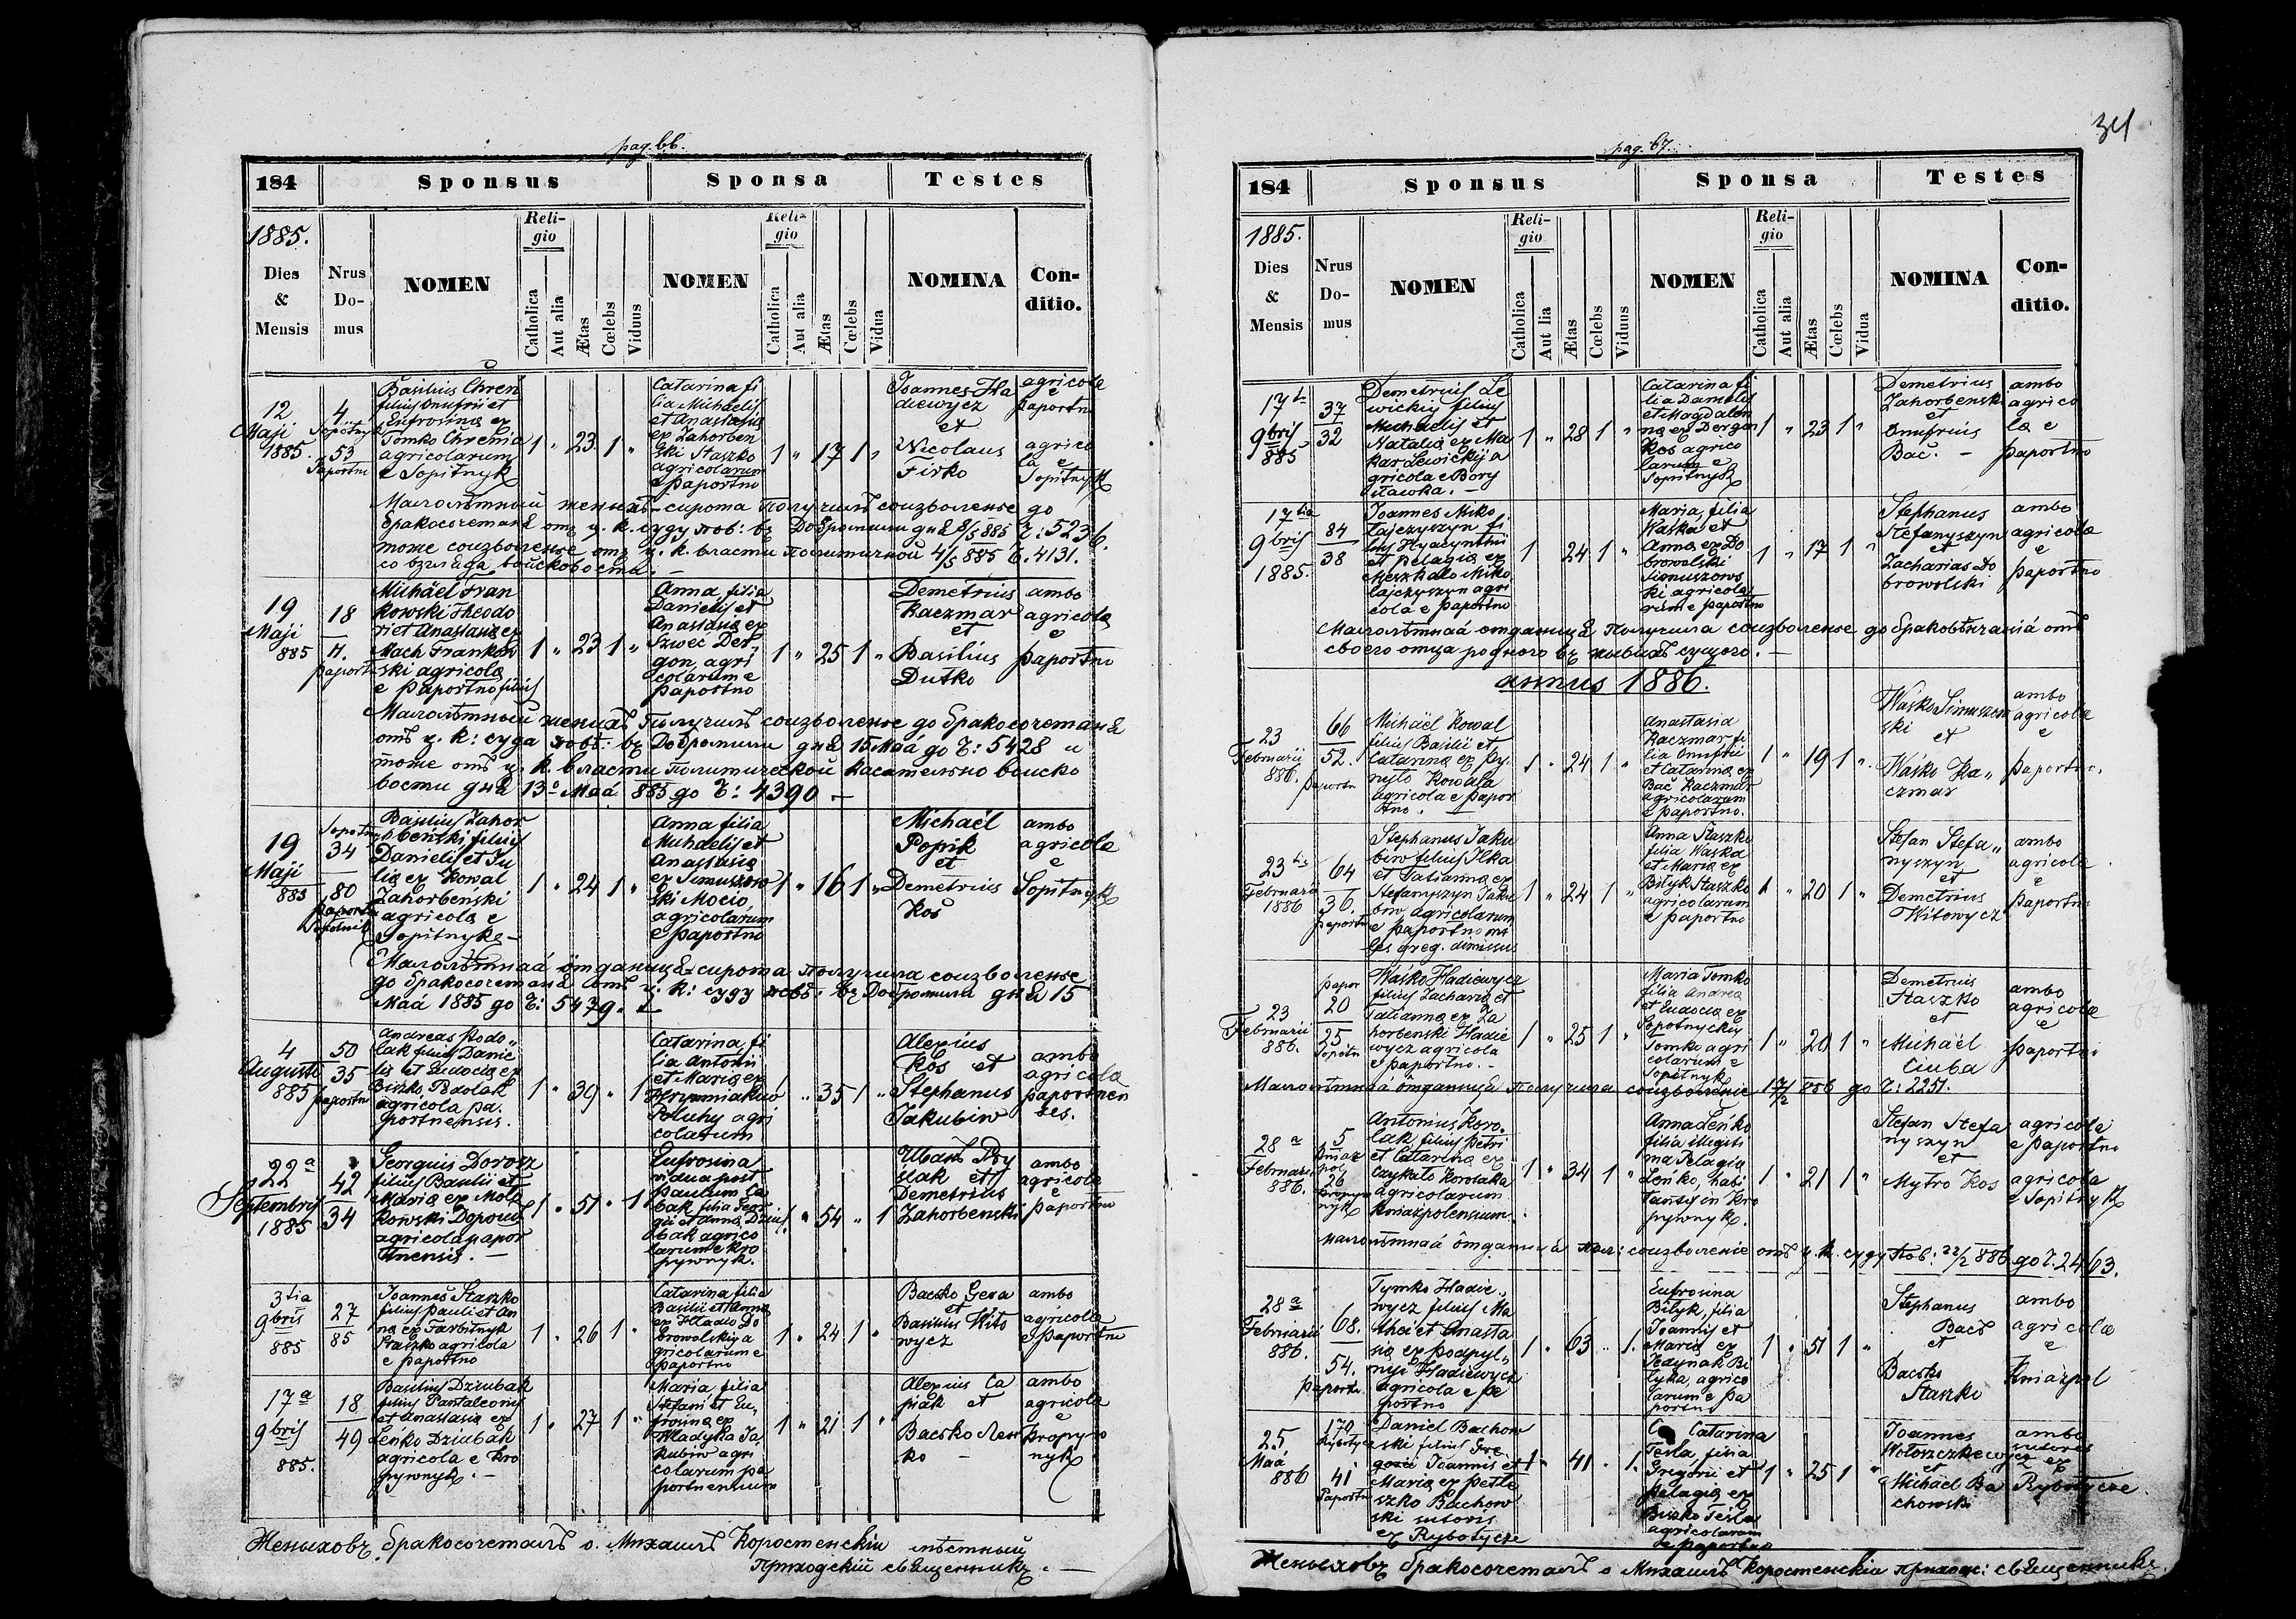 34
pag. 66.
184
Sponsus
Sponsa
Testes
1885.
Dies
&
Mensis
Nrus
Do-
mus
NOMEN
Reli-
gio
Catholica
Aut alia
Ætas
Cœlebs
Viduus
NOMEN
Reli-
gio
Catholica
Aut alia
Ætas
Cœlebs
Vidua
NOMINA
Con-
ditio.
12
Maji
1885.
4
Sopotnyk
53
Paportno
Basilius Chren
filius Onufrii et
Eufrosina ex
Tomko Chrenia
agricolarum
e Sopitnyk
1 " 23 1 "
Catarina fi
lia Michaelis
et Anastasia
ex Zahorben
ski Staszko
agricolarum
e paportno
1 " 17 1 "
Joannes Hla
dewycz
et
Nicolaus
Firko
agricola
e
paportno
agrico
la e
Sopitnyk
Малолѣтный женихъ - сирота получилъ соизволенье до
бракосочетанья отъ ц. к. суду пов: въ Добромили дня 8/5 885 Ч: 5236.
тоже соизволенье отъ ц. к. власти политичной 4/5 885 Ч. 4131.
со взгляда войсковости. -
19
Maji
885
18
H.
paportn
Michäel Fran
kowski Theodo
ri et Anastasia ex
Mach Frankow
ski agricola
e paportno filius
1 " 23 1 "
Anna filia
Danielis et
Anastasia ex
Szweć Der
gon, agri
colarum e
paportno
1 " 25 1 "
Demetrius
Kaczmar
et
Basilius
Dutko
ambo
agricola
e
paportno
Малолѣтный женихъ получилъ соизволенье до бракосочетанья
отъ ц. к: суда повѣ: въ Добромили дня 15 Мая до Ч: 5428 и
тоже отъ ц. к. власти политической касательно войско
вости дня 13o Мая 885 до Ч: 4390 -
19
Maji
885
Sopotny
34
80
paportn
Basilius Zahor
benski filius
Danielis et Ju
lia ex Kowal
Zahorbenski
agricola e
Sopitnyka -
1 " 24 1 "
Anna filia
Michaelis et
Anastasia
ex Simuszow
ski Mocio,
agricolarum
e paportno
1 " 16 1 "
Michaël
Popik
et
Demetrius
Kos
ambo
agricola
e
Sopitnyk
Малолѣтная отданица сирота получила соизволенье
до бракосочетанья отъ ц. к: суду повѣ: въ Добромили дня 15
Мая 1885 до Ч: 5439. -
4
Augusti
885
50
35
paportn
Andreas Podo„
lak filius Danie
lis et Eudocia ex
Biszko Podolak
agricola pa.
portnensis.
1 " 39 " 1
Catarina fi
lia Antonii
et Maria ex
Hryniakiw
Poluhy agri
colarum
1 " 35 1 "
Alexius
Kos et
Stephanus
Jakubiw
ambo
agricola
paportnen
ses.
22 a
Septembris
1885
42
34
Georgius Dorosz
filius Basilii et
Maria ex Mola
kowski
agricola papor
tnensis. -
1 " 51 " 1
Eufrosina
vidua post
paulum Ca
bak filia Geor
gii et Anna Dziu
bak agrico
larum e Kro
pywnyk.
1 " 54 " 1
et
Demetrius
Zahorbenski
ambo
agricola
e
paportno
3tia
9bris
885
27
85
Joannes Staszko
filius Pauli et An
na ex Farbitnyk
Staszko agricola
e paportno
1 " 26 1 "
Catarina filia
Basilii et Anna
ex Hladio Do
browolski a
gricolarum e
paportno
1 " 24 1 "
Bacsko Gera
et
Basilius Wito
wycz
ambo
agricola
e paportno
17 a
9bris
885.
18
49
Basilius Dziubak
filius Pantaleonis
et Anastasia ex
Leńko Dziubak
agricola e Kro
pywnyk. -
1 " 27 1 "
Maria, filia
Stefani et Eu„
frosina ex
Wladyka Ja
kubiw agri
colarum pa
portnensium
1 " 21 1 "
Alexius Ca
piak et
Bacsko Лен
ko -
ambo
agricola
e
Kropyw
nyk
Жениховъ бракосочеталъ о. Михаилъ Коростенскій мѣстный
Приходскій священникъ. -
pag. 67.
184
Sponsus
Sponsa
Testes
1885.
Dies
&
Mensis
Nrus
Do-
mus
NOMEN
Reli-
gio
Catholica
Aut lia
Ætas
Cœlebs
Viduus
NOMEN
Reli-
gio
Catholica
Aut alia
Ætas
Cœlebs
Vidua
NOMINA
Con-
ditio.
17
9bris
885
37
32
Demetrius Le
wickiy filius
Michaelis et
Natalia ex Ma
kar Lewickij a
gricola e Bory
slawka. -
1 " 28 1 "
Catarina fi
lia Danielis
et Magdalen
na ex Dergon
Kos agrico
larum e
Sopitnyk
1 " 23 1 "
Demetrius
Zahorbenski
et
Onufrius
Bać. -
ambo
agrico
la e
paportno
17tia
9bris
1885.
84
38
Joannes Miko
łajczyszyn fi
lius Hyacynthii
et Pelagia ex
Meszkalo Miko
łajczyszyn agri
cola e paportno
1 24 1 "
Maria, filia
Waśka et
Anna ex Do
browolski
Simuszows
ki agricola
rum e paportno
1 " 17 1 "
Stephanus
Stefanyszyn
et
Zacharias Do
browolski
ambo
agricola
e
paportno
Малолѣтная отданица получила соизволенье до браковѣнчанія отъ
своего отца родного въ живыхъ сущого. -
annus 1886.
23
Februarii
886.
66
52.
paportn
Michäel Kowal
filius Basilii et
Catarina ex Py.
nylo Kowala
agricola e papor
tno.
1 " 24 1 "
Anastasia
Kaczmar fi
lia Onufrii
et Catarina ex
Bać Kaczmar
agricolarum
e paportno.
1 " 19 1 ".
Waśko Simuszow
ski
et
Waśko Ka„
czmar
ambo
agricola
e
paportno.
23 tia
Februarii
1886
64
36.
paportn
Stephanus Jaku
biw filius Ilka
et Tatianna ex
Stefanyszyn Jaku
biw agricolarum
e paportno mi
les greg. dimissus
1 " 24 1 "
Anna Staszko
filia Waśka
et Maria ex
Bilyk Staszko
agricolarum
e paportno
1 " 20 1 "
Stefan Stefa„
nyszyn
et
Demetrius
Witowycz
ambo
agricola
e
paportno
23
Februarii
886.
papor
20
25
Sopotn
Waśko Hladiewycz
filius Zacharia et
Tatianna ex Za
horbenski Hladie
wycz agricola
e paportno. -
1 " 25 1 "
Maria Tomko
filia Andrea
et Eudocia ex
Sopotnyckiy
Tomko agri
colarum e
Sopitnyk
1 " 20 1 "
Demetrius
Staszko
et
Michäel
Ciuba
ambo
agricola
e
paportno
Малолѣтная отданица получила соизволеніе 17/2 886 до Ч: 2251.
28 a
Februarii
886.
5
26
Antonius Koro.
lak filius Petri
et Catarina ex
Carykalo Korolaka
agricolarum
Kniażpolensium.
1 " 34 1 "
Anna Leńko
filia illegiti
ma Pelagia
Leńko, habi
tansy in Kro
pywnyk.
1 " 21 1 "
Stefan Stefa
nyszyn
et
Mytro Kos
agricola
e paportno
agricola
e Sopitnyk
малолѣтная отданица пол: соизволеніе отъ ц. к. суду пов: 22/2 886 до Ч. 2463.
28 a
Februarii
886.
68.
54.
paportn.
Tymko Hladie„
wycz filius Ma
thei et Anasta
sia ex Podpyl„
nyj Hladiewycz
agricola e pa
portno
1 " 63 " 1.
Eufrosina
Bilyk, filia
Joannis et
Maria ex
Jedynak Bi
lyka, agrico
larum e pa
portno
1 " 51 1 "
Stephanus
Bacь
et
Bacsko
Staszko
ambo
agricola
e
Kniażpol
25
Maâ
886
170
Rybotycze
41
Paportn
Daniel Bachow
ski filius Gre
gorii Joannis et
Maria ex Petla
szko Bachow
ski sutoris
ex Rybotycze
1 " 41 " 1.
Catarina
Tesla filia
Grigorii et
Pelagia ex
Biszko Tesla
agricolarum
de paportno
1 " 25 1 "
Joannes
Wołoszczkewycz
et
Michäel Ba
chowski
ambo
sutores
ex
Rybotycze
Жениховъ бракосочеталъ о Михаилъ Коростенскій приходс: священникъ.